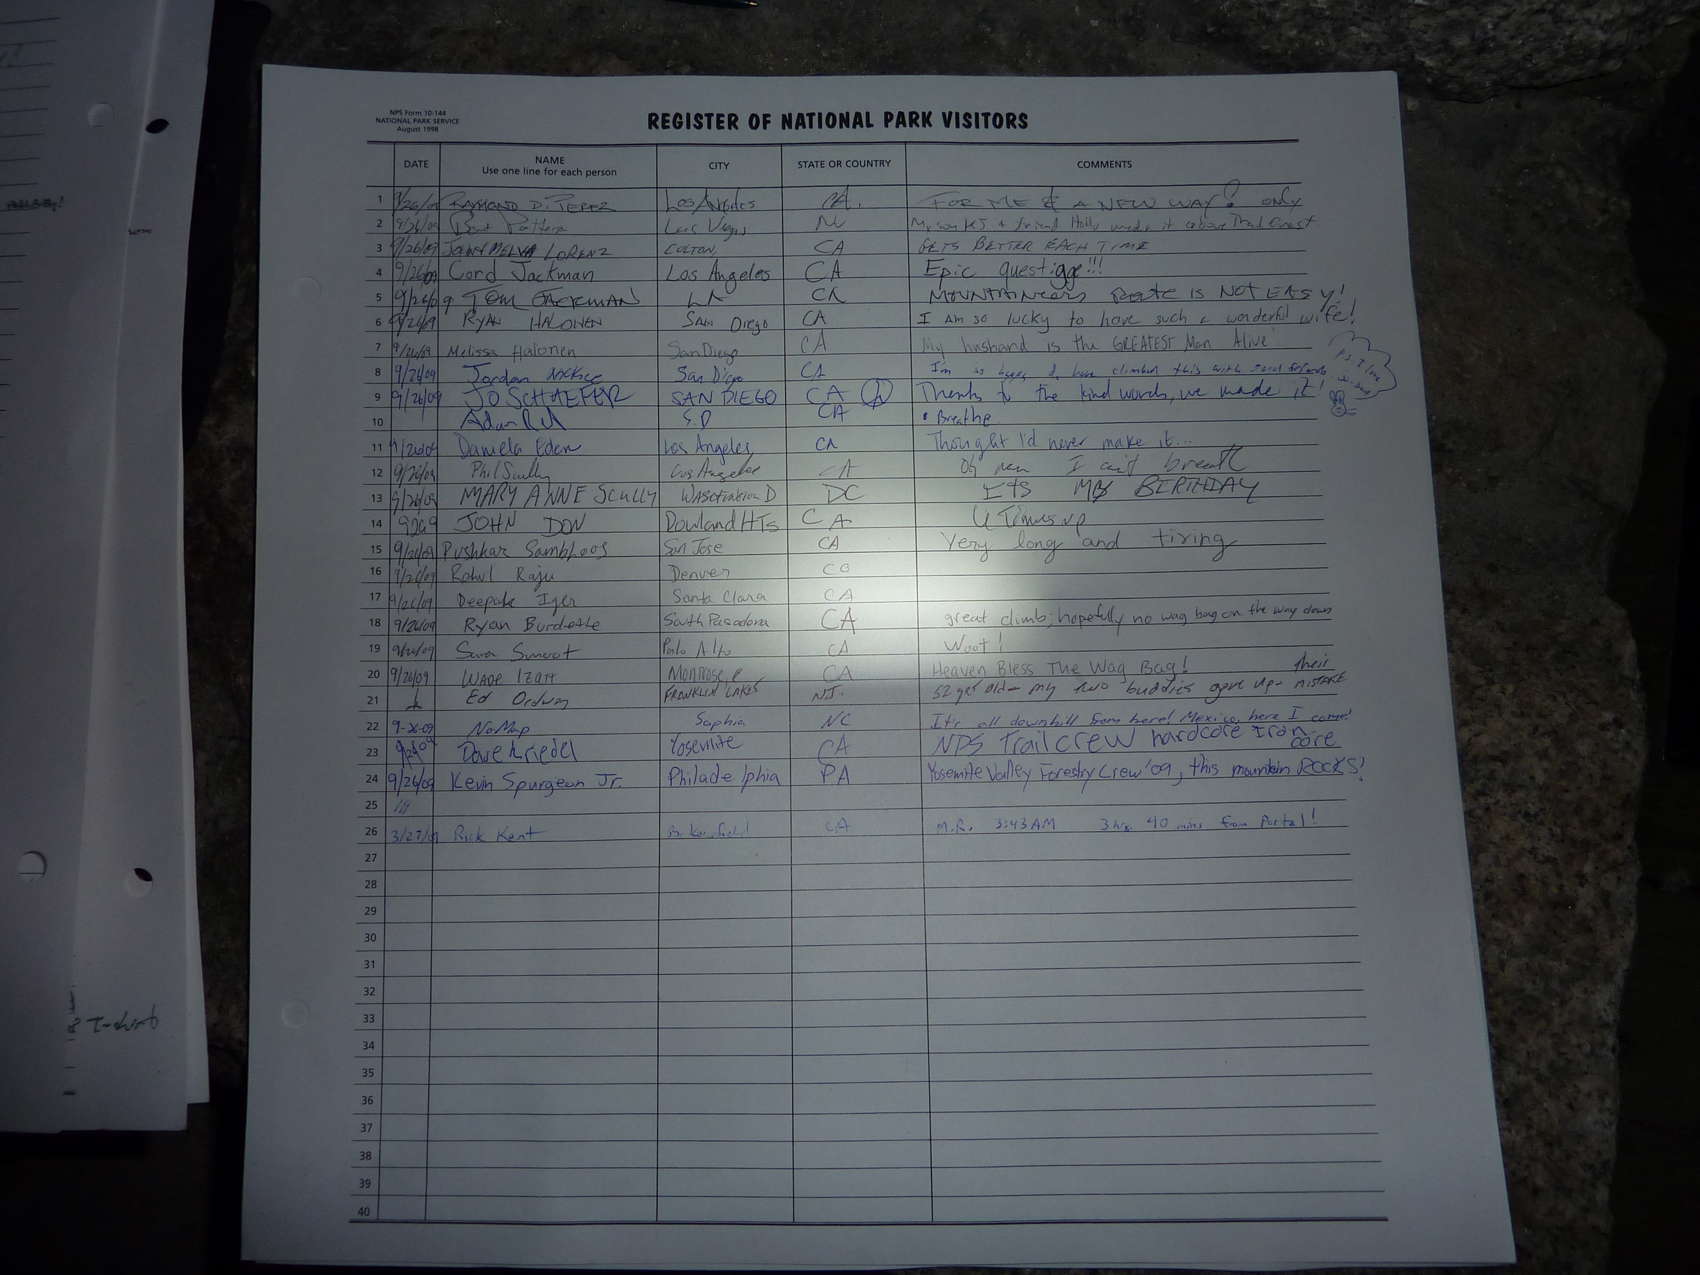 NPS Form 10-144
NATIONAL PARK SERVICE
August 1998
REGISTER OF NATIONAL PARK VISITORS
DATE NAME CITY STATE OR COUNTRY COMMENTS
Use one line for each person
1 9/26/09 RAYMOND D. PEREZ Los Angeles CA. FOR ME & A NEW WAY! only
2 9/26/09 Las Vegas NV My son KJ & friend Holly made it above Trail Crest
3 9/26/09 JOHN MELVA LORENZ COLTON, CA GETS BETTER EACH TIME
4 9/26/09 Cord Jackman Los Angeles CA Epic questigge!!!
5 9/26/09 TOM JACKMAN LA CA MOUNTAINEERS Route IS NOT EASY!
6 9/26/09 RYAN HALONEN SAN Diego CA I Am so lucky to have such a wonderful wife!
7 9/26/09 Melissa Halonen San Diego CA My husband is the GREATEST Man Alive
8 9/26/09 Jordan San Diego CA I'm so happy to have climbed this with good friends
P.S. I love
9 9/26/09 JO SCHAEFER SAN DIEGO CA Thanks for the kind words, we made it!
10 Adam S.D CA • Breathe
11 9/26/09 Daniela Eden Los Angeles CA Thought I'd never make it...
12 9/26/09 Phil Scully Los Angeles CA Oh man I can't breath
13 9/26/09 MARY ANNE Scully WASHINGTON D DC ITS MY BIRTHDAY
14 9269 JOHN DON Rowland HTS CA 4 Times up
15 9/26/09 Pushkar Sambhoos San Jose CA Very long and tiring
16 9/26/09 Rahul Raju Denver CO
17 9/26/09 Deepak Iyer Santa Clara CA
18 9/26/09 Ryan Burdette South Pasadena CA great climb; hopefully no wag bag on the way down
19 9/26/09 Sara Palo Alto CA Woot!
20 9/26/09 WADE IZATT Montrose CA Heaven Bless The Wag Bag!
21 Ed FRANKLIN LAKES NJ. 52 yr old - my two buddies gave up - their MISTAKE
22 9-26-09 NoMap Sophia NC It's all downhill from here! Mexico, here I come!
23 9/26/09 Dave Kriedel Yosemite CA NPS Trail crew hardcore Iron core
24 9/26/09 Kevin Spurgeon Jr. Philadelphia PA Yosemite Valley Forestry Crew '09, this mountain ROCKS!
25
26 3/27/09 Rick Kent Bakersfield CA M.R. 3:43 AM 3 hrs 40 mins from Portal!
27
28
29
30
31
32
33
34
35
36
37
38
39
40
T-shirt